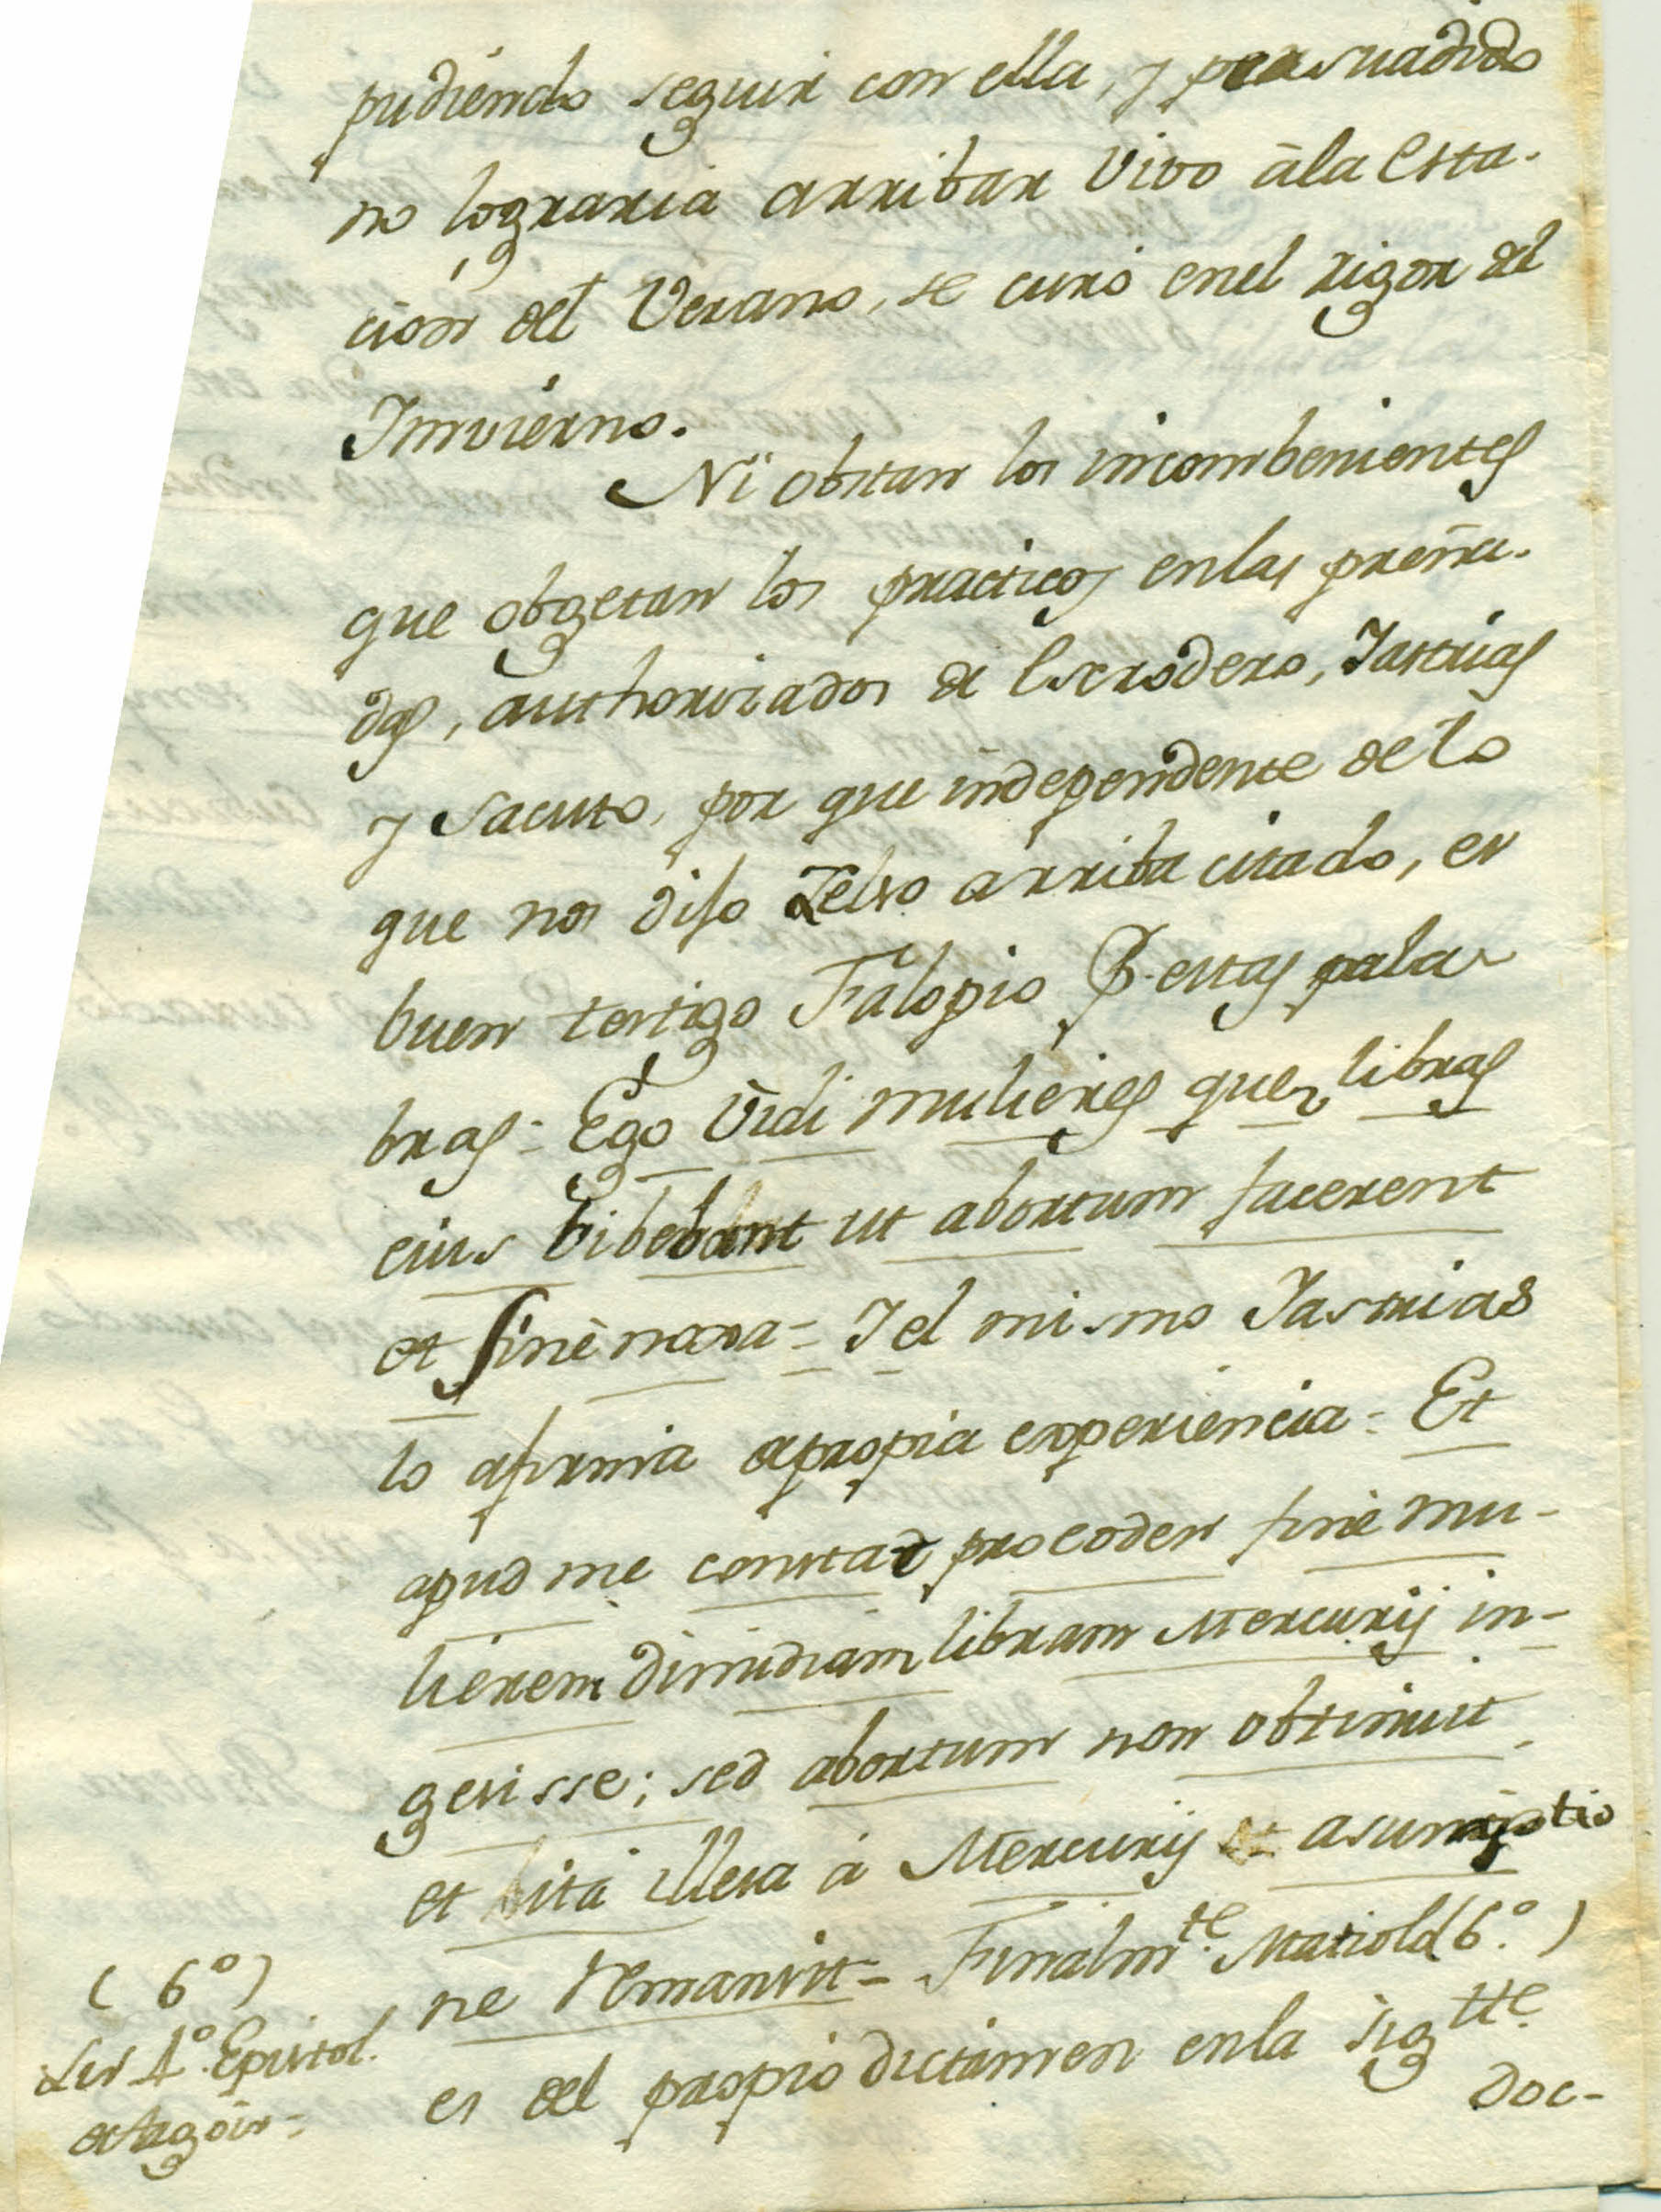 pudiendo seguir con ella, y persuadido
no lograria arribar vivo â la Esta-
cion del Verano, se curó en el rigor del
Invierno.
Ni obstan los incombenientes
que obgetan los practicos en las preña-
das, authorizados de Escrodero, Jastrias
y Sacuto, por que independente de lo
que nos dijo Zelso arriba citado, es
buen testigo Falopio P. estas pala
bras: Ego vidi mulieres quæ libras
eius bibebant ut abortum facerent
et sinè noxa = I el mismo Jastrias
lo afirma de propia experiencia = Et
apud me constat procoden sinè mu-
lierem dimidiam libram Mercurij in-
gesisse; sed abortum non obtinuit,
et ita illesa á Mercurij asumptio
ne remansit = Finalmte. Matiolo (6.º)
es del propio dictamen en la sigtte.
Doc-
(6º)
Lib 4º. Epistol.